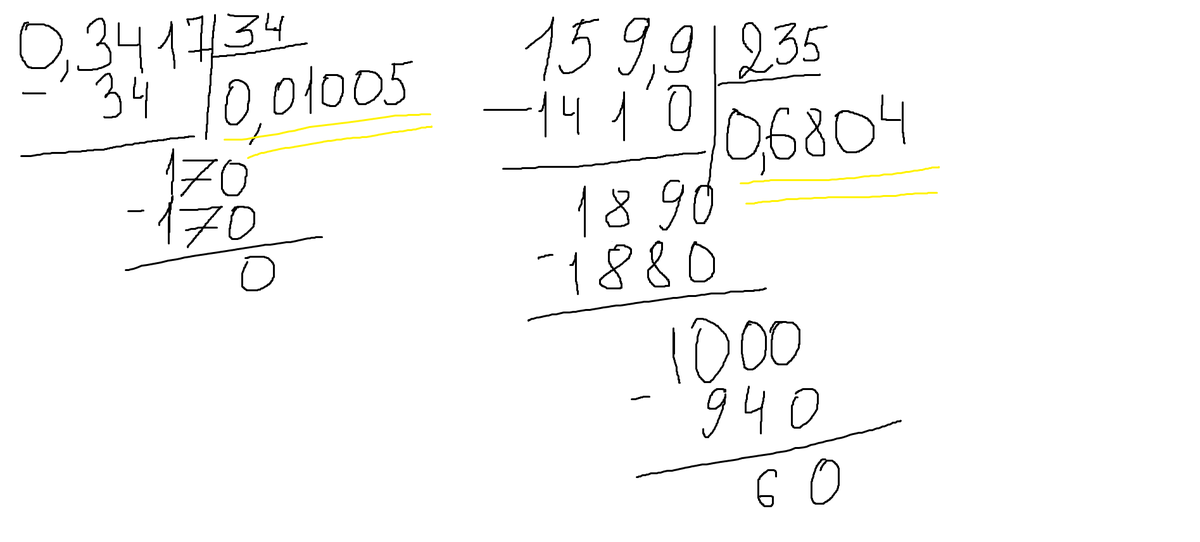 0,3417 34
- 34 0,01005
170
- 170
0
159,9 235
- 1410 0,6804
1890
- 1880
1000
- 940
60